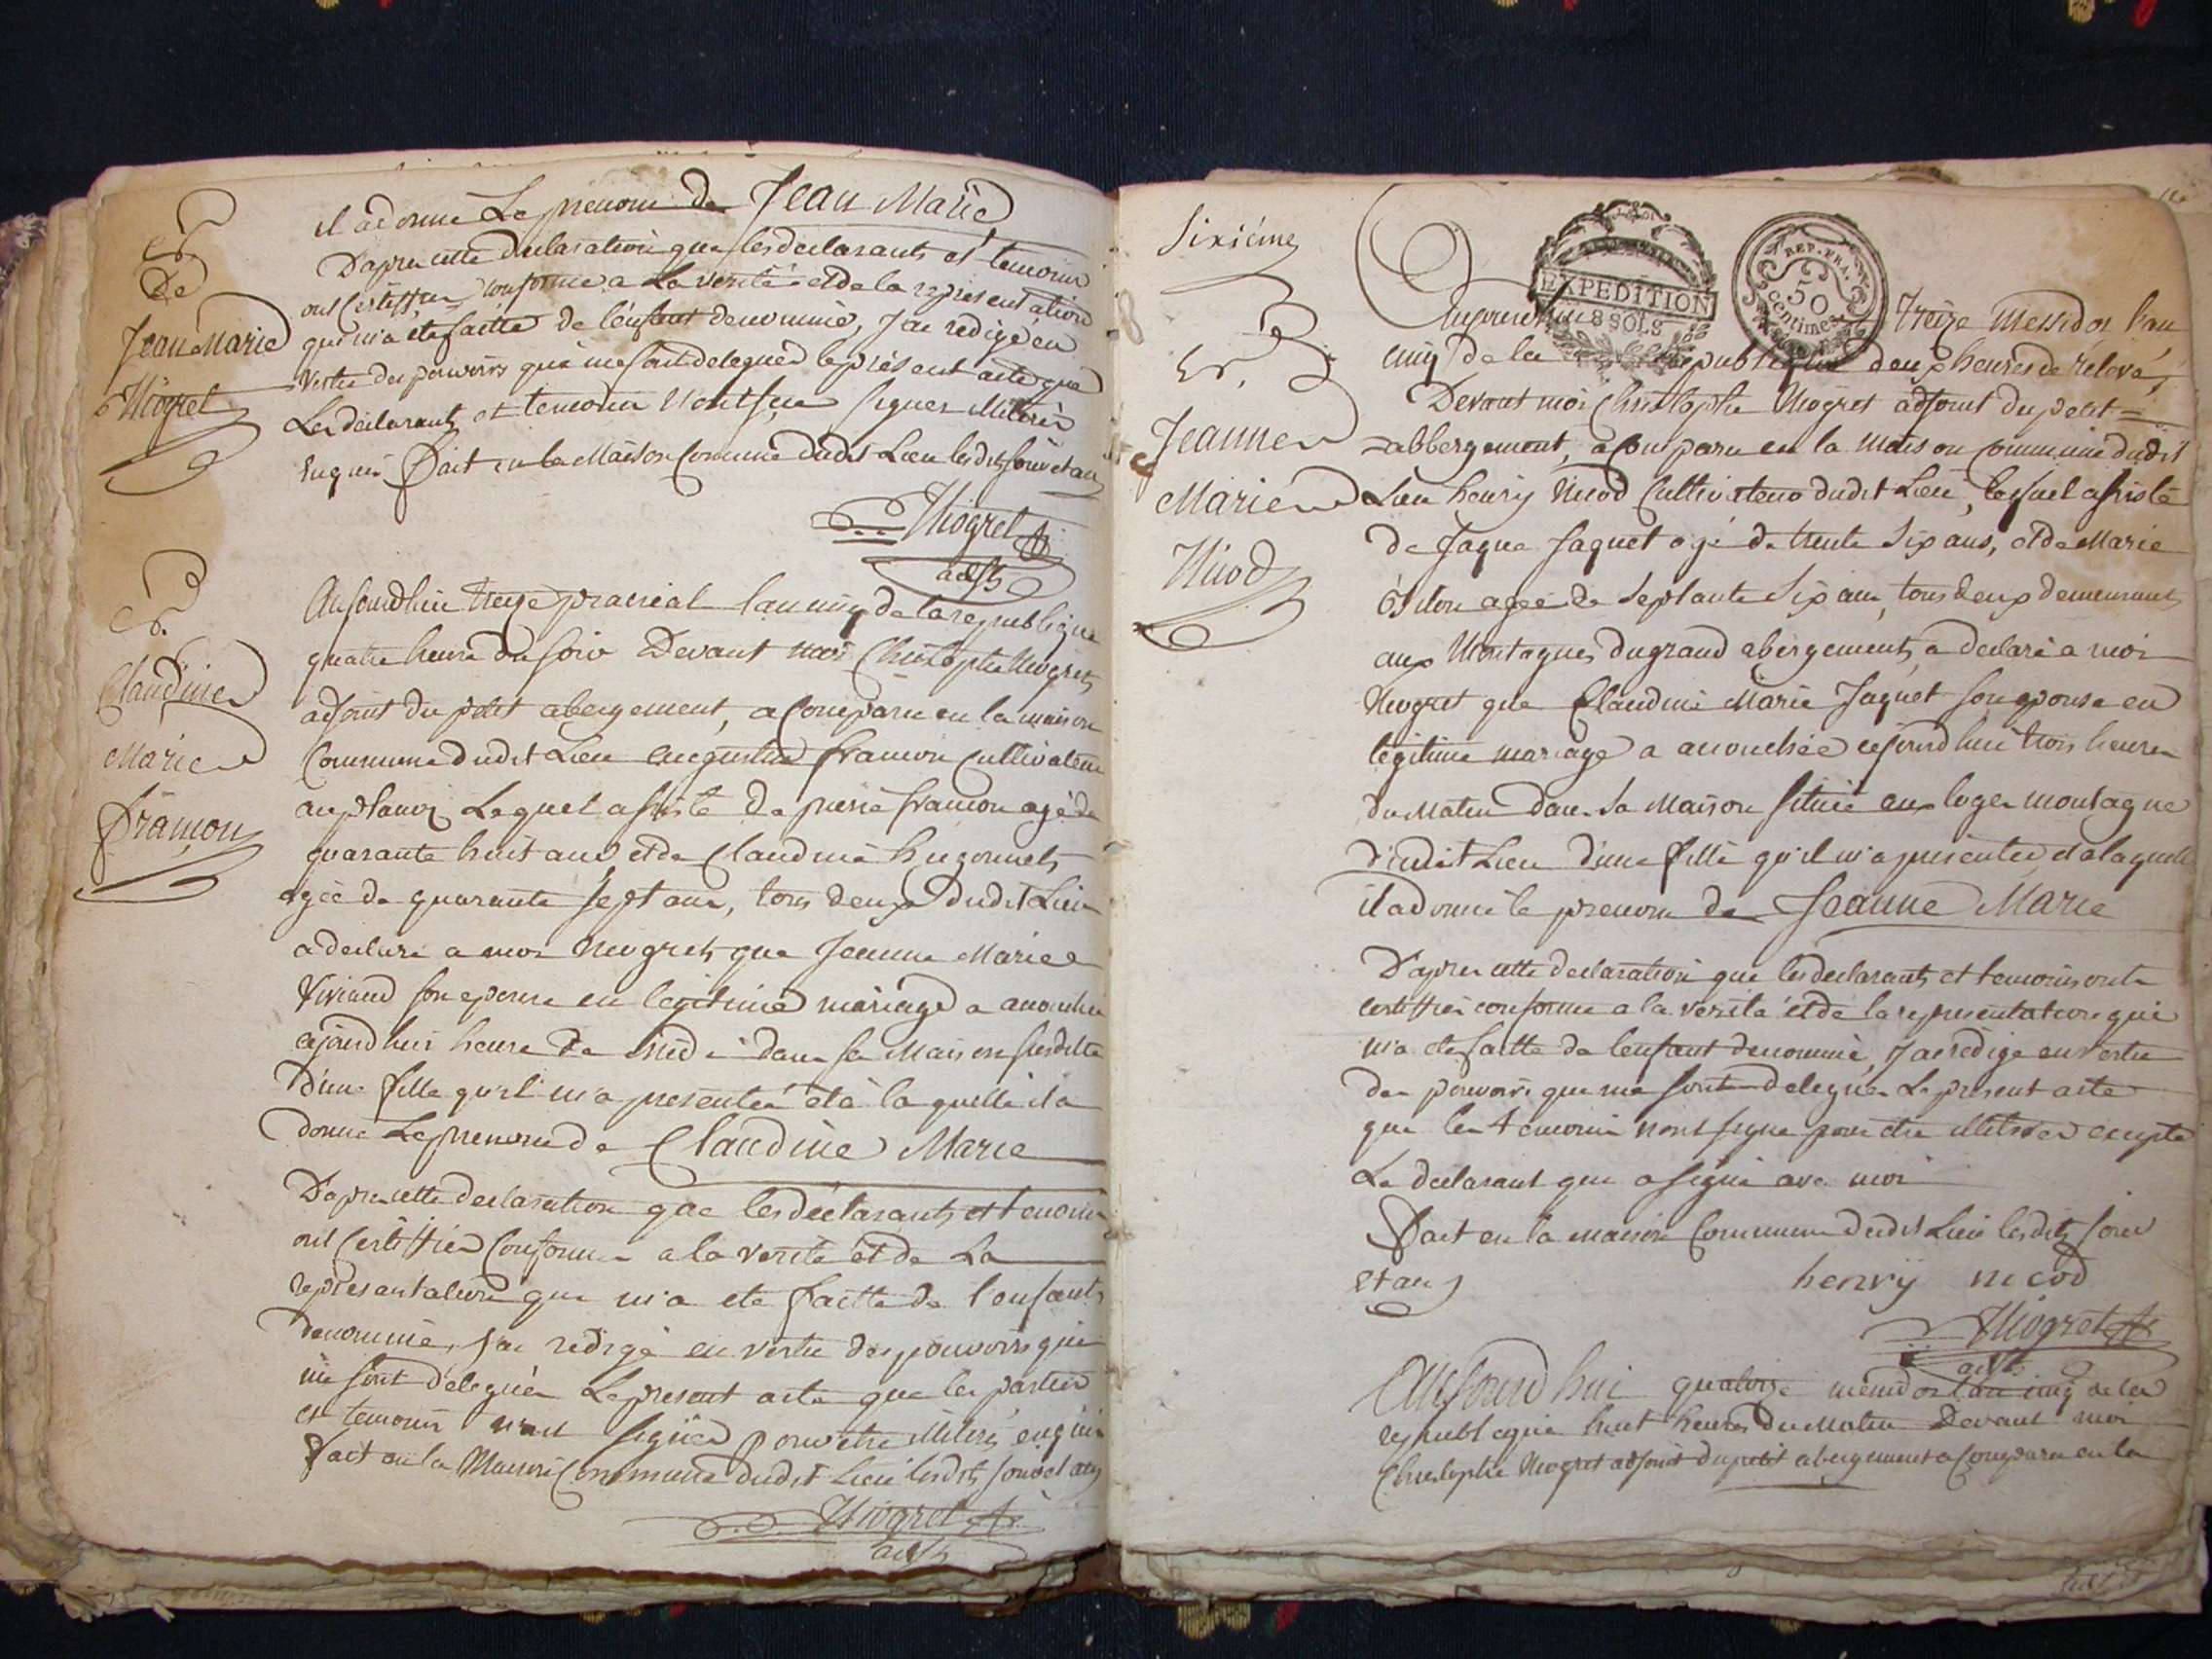 Nce
De
Jean Marie
Niogret
il a donné Le prenom de Jean Marie
D'apres cette declaration que les declarants et temoins
ont certiffiez conforme a La verité et de la representation
qui m'a été faitte de l'enfant denommé, J'ai redigé en
vertu des pouvoirs qui me sont delegués le présent acte que
Les declarants et temoins n'ont sçu signer
enquis Fait en la Maison Commune dudit Lieu lesdits jour et an
Niogret
adjt
Nce
Claudine
Marie
Framon
Aujourdhui treize prairial l'an cinq de la republique
quatre heure du soir Devant moi Christophe Niogret
adjoint du petit abergement, a comparu en la maison
Commune dudit Lieu augustin framon cultivateur
Lequel assisté de pierre framon agé de
quarante huit ans et de Claudine hugonnet
agée de quarante sept ans, tous deux dudit Lieu
a declaré a moi Niogret que Jeanne Marie
Viviand son epouse en legitime mariage a accouchée
cejourdhui heure de midi dans sa Maison susditte
D'une fille qu'il m'a presentée et à la quelle il a
donné Le prenom de Claudine Marie
D'apres cette declaration que les déclarants et temoins
ont Certiffiéz Conforme a la verité et de La
representation qui m'a eté faitte de l'enfant
denommé, J'ai redigé en vertu des pouvoirs qui
me sont délegués Le present acte que les parties
et temoins n'ont signéz pour etre illiterés enquis
Fait en la Maison Commune dudit Lieu lesdits jour et an
Niogret
adjt
Sixième
Nce
Jeanne
Marie
Nicod
EXPEDITION
8 SOLS
REP. FRA.
50
Centimes
Aujourdhui treize Messidor l'an
cinq de la republique deux heures de relevé,
Devant moi Christophe Niogret adjoint du petit=
=abbergement, a comparu en la maison commune dudit
Lieu henry Nicod Cultivateur dudit Lieu, lequel assisté
de Jaque Jaquet agé de trente six ans, et de Marie
agée de septante six ans, tous deux demeurants
aux Montagnes du grand abergement, a declaré a moi
Niogret que Claudine Marie Jaquet son epouse en
legitime mariage a accouchée cejourdhui trois heures
du Matin dans sa Maison située aux loges montagne
dudit Lieu d'une fille qu'il m'a presentée et a laquelle
il a donné le prenom de Jeanne Marie
D'apres cette declaration que les declarants et temoins ont
certiffiés conforme a la verité et de la representation qui
m'a eté faitte de l'enfant denommé, J'ai rédigé en vertu
des pouvoirs qui me sont delegués Le present acte
que les temoins n'ont signé pour etre illiterés excepté
Le declarant qui a signé avec moi
Fait en la maison Commune dudit Lieu lesdits jour
et an
henrij nicod
Niogret
adjt
Aujourdhui quatorze messidor l'an cinq de la
republique huit heures du Matin Devant moi
Christophe Niogret adjoint du petit abergement a comparu en la